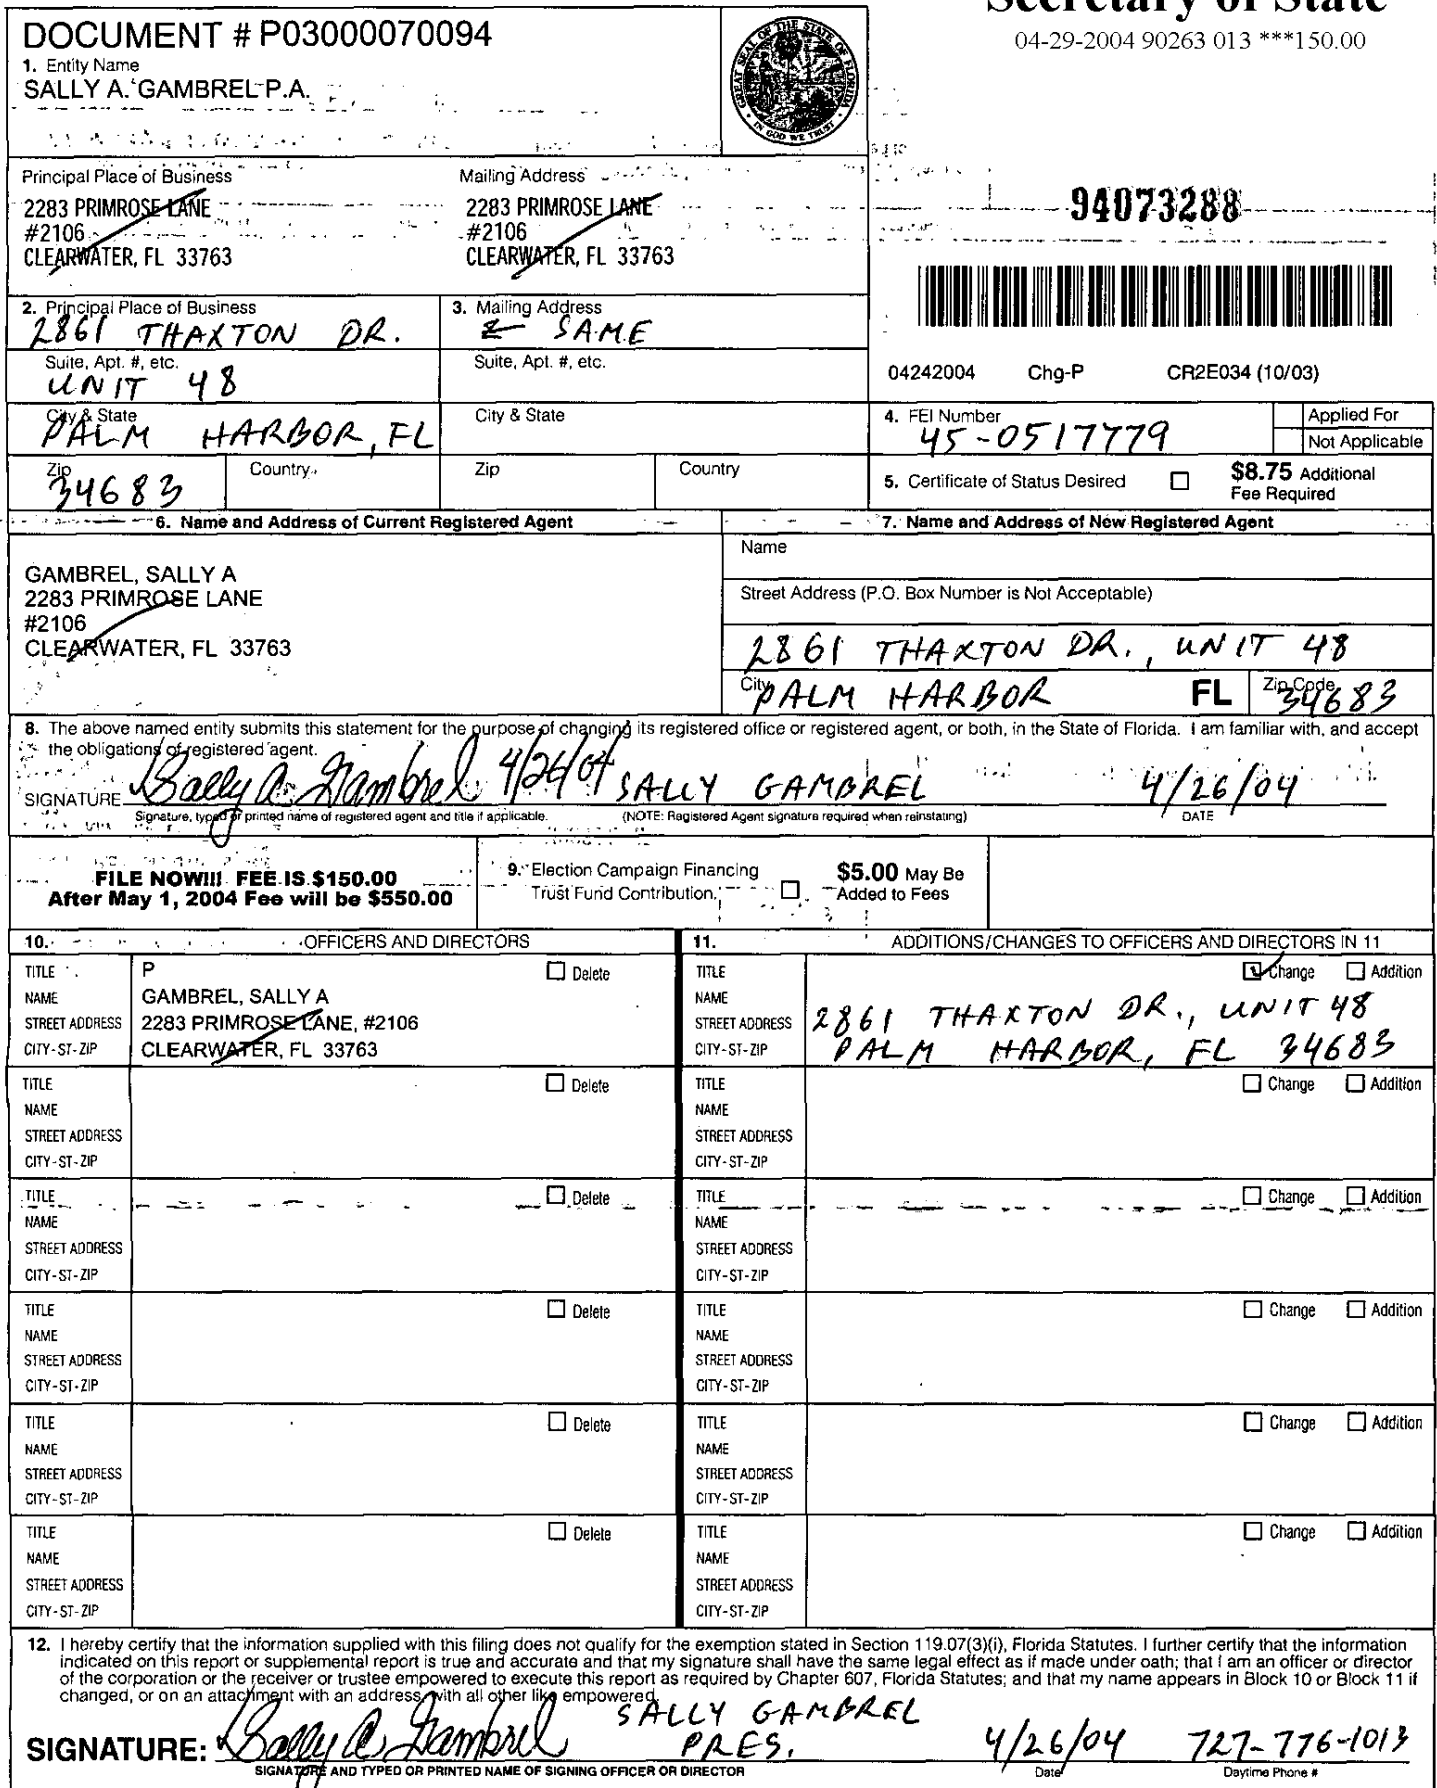 Secretary of State
04-29-2004 90263 013 ***150.00
DOCUMENT # P03000070094
1. Entity Name
SALLY A. GAMBREL P.A.
GREAT SEAL OF THE STATE OF FLORIDA
IN GOD WE TRUST
Principal Place of Business
2283 PRIMROSE LANE
#2106
CLEARWATER, FL 33763
Mailing Address
2283 PRIMROSE LANE
#2106
CLEARWATER, FL 33763
94073288
2. Principal Place of Business
2861 THAXTON DR.
3. Mailing Address
SAME
Suite, Apt. #, etc.
UNIT 48
Suite, Apt. #, etc.
04242004 Chg-P CR2E034 (10/03)
City & State
PALM HARBOR, FL
City & State
4. FEI Number
45-0517779
Applied For
Not Applicable
Zip
34683
Country
Zip
Country
5. Certificate of Status Desired
$8.75 Additional
Fee Required
6. Name and Address of Current Registered Agent
7. Name and Address of New Registered Agent
GAMBREL, SALLY A
2283 PRIMROSE LANE
#2106
CLEARWATER, FL 33763
Name
Street Address (P.O. Box Number is Not Acceptable)
2861 THAXTON DR., UNIT 48
City
PALM HARBOR FL
Zip Code
34683
8. The above named entity submits this statement for the purpose of changing its registered office or registered agent, or both, in the State of Florida. I am familiar with, and accept
the obligations of registered agent.
SIGNATURE Sally A. Gambrel 4/26/04 SALLY GAMBREL 4/26/04
Signature, typed or printed name of registered agent and title if applicable. (NOTE: Registered Agent signature required when reinstating) DATE
FILE NOW!!! FEE IS $150.00
After May 1, 2004 Fee will be $550.00
9. Election Campaign Financing
Trust Fund Contribution.
$5.00 May Be
Added to Fees
10. OFFICERS AND DIRECTORS
11. ADDITIONS/CHANGES TO OFFICERS AND DIRECTORS IN 11
TITLE P Delete
NAME GAMBREL, SALLY A
STREET ADDRESS 2283 PRIMROSE LANE, #2106
CITY-ST-ZIP CLEARWATER, FL 33763
TITLE Change Addition
NAME
STREET ADDRESS 2861 THAXTON DR., UNIT 48
CITY-ST-ZIP PALM HARBOR, FL 34683
TITLE Delete
NAME
STREET ADDRESS
CITY-ST-ZIP
TITLE Change Addition
NAME
STREET ADDRESS
CITY-ST-ZIP
TITLE Delete
NAME
STREET ADDRESS
CITY-ST-ZIP
TITLE Change Addition
NAME
STREET ADDRESS
CITY-ST-ZIP
TITLE Delete
NAME
STREET ADDRESS
CITY-ST-ZIP
TITLE Change Addition
NAME
STREET ADDRESS
CITY-ST-ZIP
TITLE Delete
NAME
STREET ADDRESS
CITY-ST-ZIP
TITLE Change Addition
NAME
STREET ADDRESS
CITY-ST-ZIP
TITLE Delete
NAME
STREET ADDRESS
CITY-ST-ZIP
TITLE Change Addition
NAME
STREET ADDRESS
CITY-ST-ZIP
12. I hereby certify that the information supplied with this filing does not qualify for the exemption stated in Section 119.07(3)(i), Florida Statutes. I further certify that the information
indicated on this report or supplemental report is true and accurate and that my signature shall have the same legal effect as if made under oath; that I am an officer or director
of the corporation or the receiver or trustee empowered to execute this report as required by Chapter 607, Florida Statutes; and that my name appears in Block 10 or Block 11 if
changed, or on an attachment with an address, with all other like empowered.
SALLY GAMBREL
SIGNATURE: Sally A. Gambrel PRES. 4/26/04 727-776-1013
SIGNATURE AND TYPED OR PRINTED NAME OF SIGNING OFFICER OR DIRECTOR Date Daytime Phone #